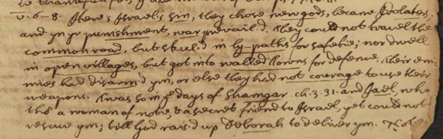 v. 6-8. Here's Israel's sin, they chose new gods, became Idolaters,
and yn ye punishment, war prevail'd. They could not travel the
common road, but skulk'd in by-paths for safetie; nor dwell
in open villages, but got into walled towns for defence. Their ene-
mies had disarm'd ym, or else they had not courage to use their
weapons. 'Twas so in ye days of Shamgar ch. 3. 31. and Jael, who
tho' a woman of note, & a secret friend to Israel, yet could not
rescue ym; till God rais'd up Deborah to deliver ym.